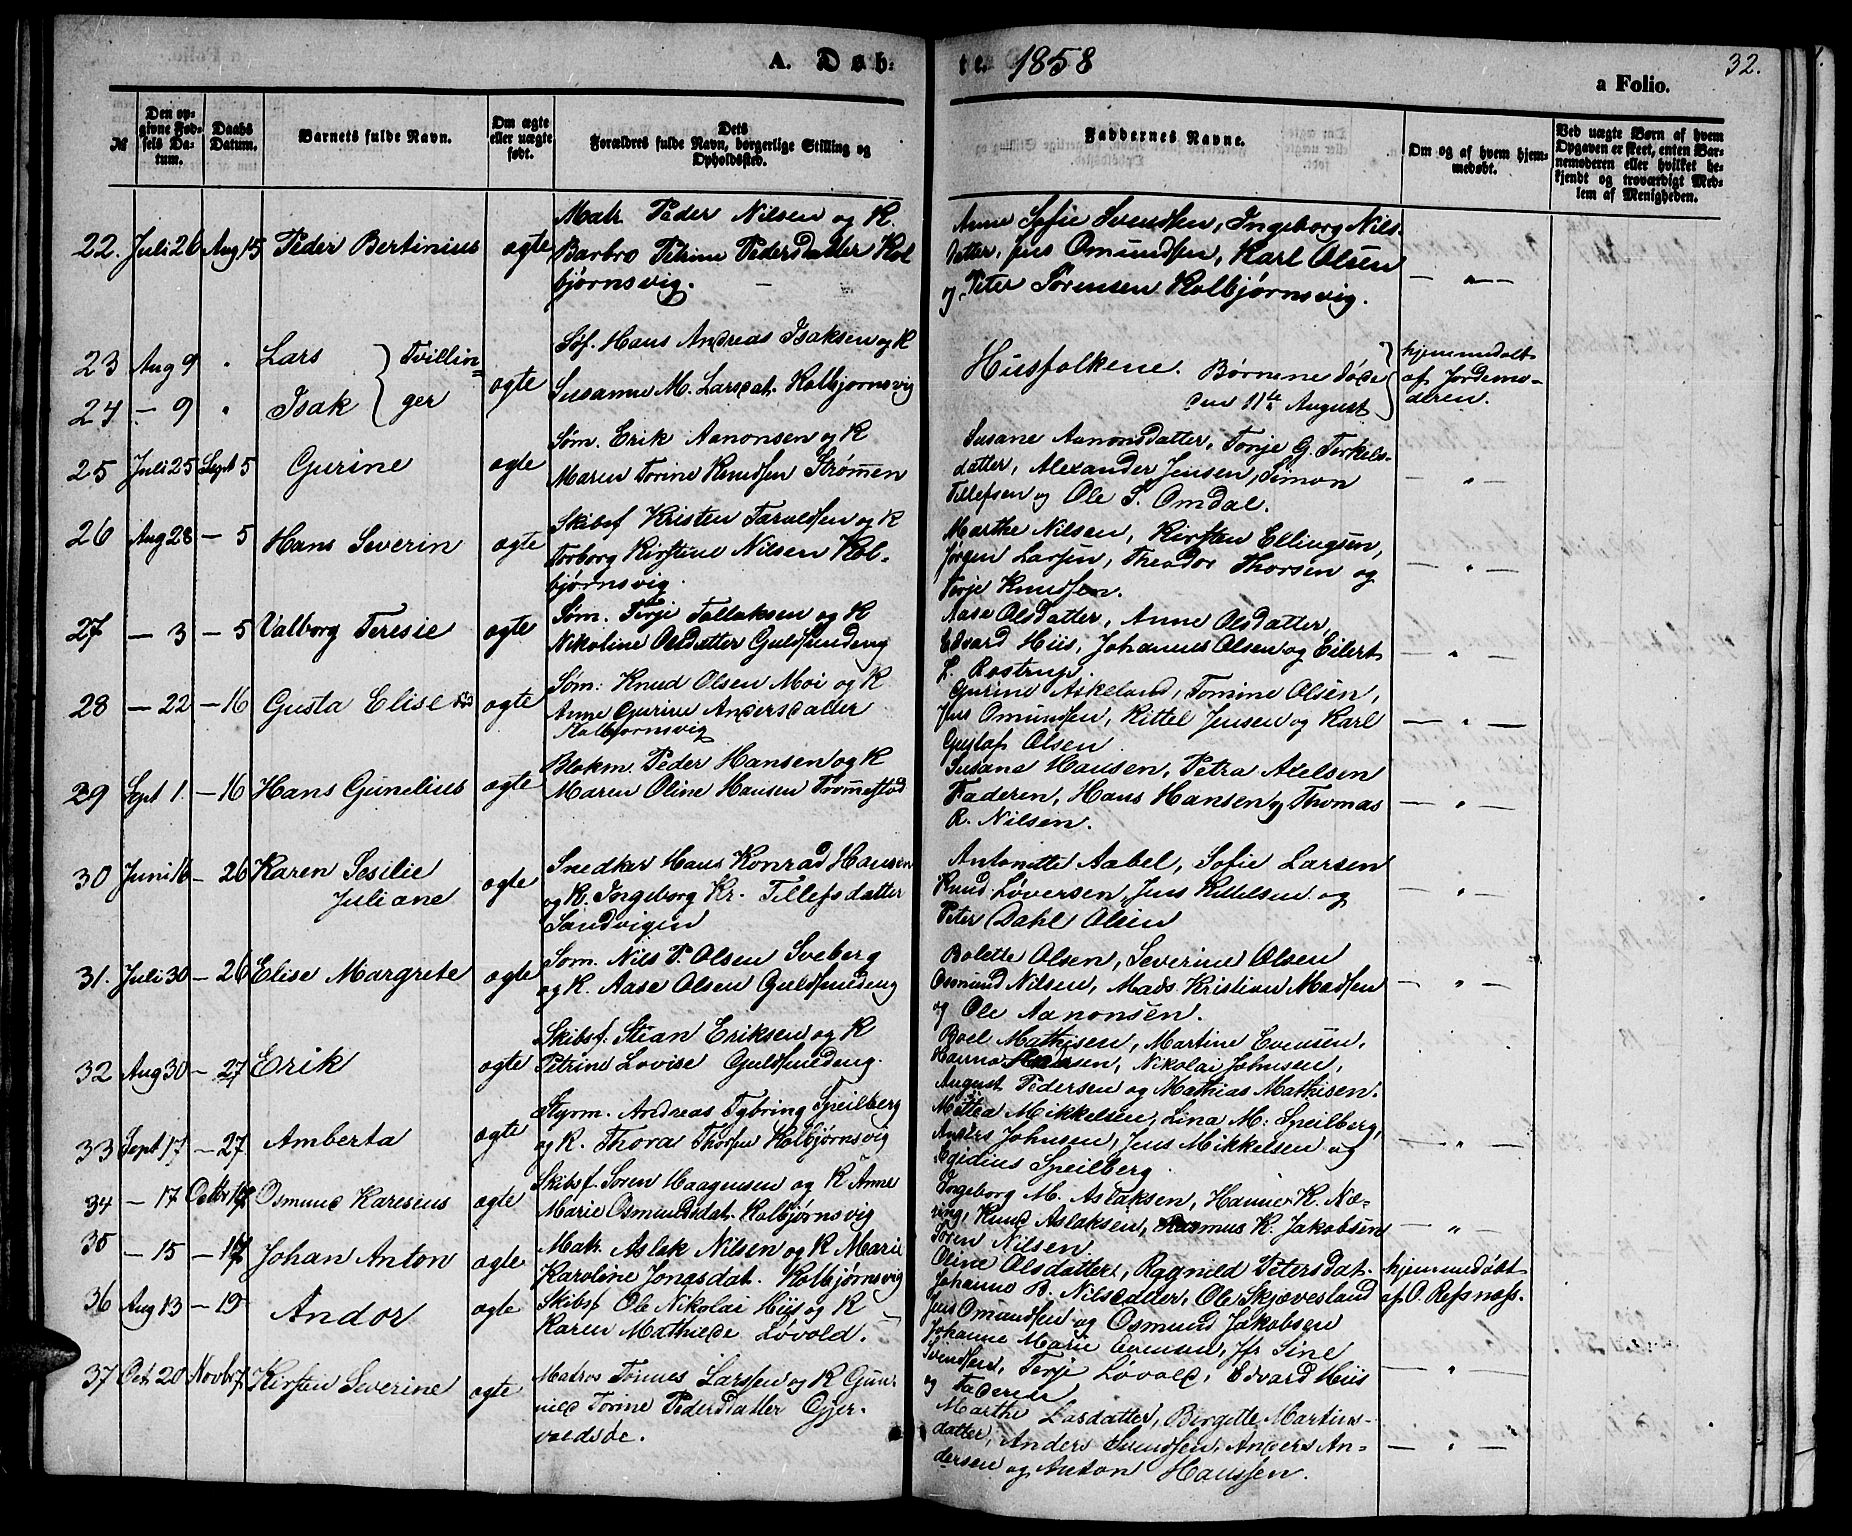 A. Døb-
te. 1858
a Folio.
32.
№
Den op-
givne Fød-
sels Da-
tum.
Daabs
Datum.
Barnets fulde Navn.
Om ægte
eller uægte
født.
Dets
Forældres fulde Navn, borgerlige Stilling og
Opholdssted.
Faddernes Navne.
Om og af hvem hjem-
medøbt.
Ved uægte Børn af hvem
Opgaven er skeet, enten Bar-
nemoderen eller hvilket be-
kjendt og troværdigt Med-
lem af Menigheden.
22. Juli 26 Aug 15 Peder Bertinius ægte
Matr. Peder Nilsen og K.
Barbro Petrine Pedersdatter Kol
bjørnsvig.
Anne Sofie Svendsen, Ingeborg Nils-
datter, Jens Omundsen, Karl Olsen
og Peter Sørensen Kolbjørnsvig.
— " —
23 Aug 9 " Lars Tvillin=
24 — 9 " Isak ger ægte
Søf. Hans Andreas Isaksen og K
Susanne M. Larsdat. Kolbjørnsvig
Husfolkene. Børnene døde
den 11te August
hjemmedøbt
af Jordemo-
deren.
25 Juli 25 Sept 5 Gurine ægte
Søm. Erik Aanonsen og K
Maren Torine Knudsen Strømen
Susane Aanonsdatter, Torje G. Terkels-
datter, Alexander Jensen, Simon
Tillefsen og Ole S. Omdal.
— " —
26 Aug 28 — 5 Hans Severin ægte
Skibsf Kristen Taraldsen og K
Torborg Kirstine Nilsen Kol-
bjørnsvig.
Marthe Nilsen, Kirsten Ellingsen,
Jørgen Larsen, Theodor Thorsen og
Terje Knudsen.
— " —
27 — 3 — 5 Valborg Teresie ægte
Søm. Terje Tallaksen og K
Nikoline Olsdatter Guldsmedeng
Aase Olsdatter, Anne Olsdatter,
Edvard Hiis, Johannes Olsen og Eilert
L. Rostrup.
— " —
28 — 22 — 16 Gusta Elise død ægte
Søm: Knud Olsen Moi og K
Anne Gurine Andersdatter
Kolbjørnsvig
Gurine Askeland, Tomine Olsen,
Jens Omundsen, Kittel Jensen og Karl
Gustaf Olsen
— " —
29 Sept 1. — 16 Hans Gunelius ægte
Blokm. Peder Hansen og K
Maren Oline Hansen Tromøstød
Susane Hansen, Petra Axelsen
Faderen, Hans Hansen og Thomas
R. Nilsen.
— " —
30 Juni 16 — 26 Karen Sesilie
Juliane ægte
Snedker Hans Konrad Hansen
og K. Ingeborg Kr. Tillefsdatter
Sandvigen
Antonette Aabel, Sofie Larsen
Knud Løversen, Jens Kittelsen og
Peter Dahl Olsen
— " —
31. Juli 30 — 26 Elise Margrete ægte
Søm. Nils P. Olsen Sveberg
og K. Aase Olsen Guldsmedeng
Bolette Olsen, Severine Olsen
Osmund Nilsen, Mads Kristian Madsen
og Ole Aanonsen.
— " —
32 Aug 30 — 27 Erik ægte
Skibsf. Stian Eriksen og K
Petrine Lovise Guldsmedeng.
Boel Mathisen, Martine Evensen,
Hanna Hansen, Nikolai Johnsen,
August Pedersen og Mathias Mathisen.
33 Sept 17 — 27 Amberta ægte
Styrm. Andreas Tybring Speilberg
og K. Thora Thorsen Kolbjørnsvig
Mettea Mikkelsen, Lina M: Speilberg,
Anders Johnsen, Jens Mikkelsen og
Egidius Speilberg
— " —
34 — 17 Octbr 17 Osmund Karesius ægte
Skibsf. Søren Haagensen og K Anne
Marie Osmundsdat. Kolbjørnsvig
Ingeborg M. Aslaksen, Hanne K. Næ-
ring, Knud Aslaksen, Rasmus K. Jakobsen
Søren Nilsen.
— " —
35 — 15 — 17 Johan Anton ægte
Matr. Aslak Nilsen og K Marie
Karoline Jonasdat. Kolbjørnsvig
Oline Olsdatter, Ragnild Petersdat.
Johanne B. Nilsdatter, Ole Skjævesland
Jens Omundsen og Osmund Jakobsen
hjemmedøbt
af O. Refsnæs.
36 Aug 13 — 19 Andor ægte
Skibsf Ole Nikolai Hiis og K
Karen Mathilde Løvold.
Johanne Marie Evensen, Jfr Sine
Svendsen, Terje Løvold, Edvard Hiis
og Faderen
— " —
37 Oct 20 Novbr 7 Kirsten Severine ægte
Matros Tønnes Larssen og K Gun-
nild Torine Pedersdatter Gjer-
valdsø.
Marthe Lasdatter, Birgitte Martins-
datter, Anders Svendsen, Anders An-
dersen og Anton Hanssen.
— " —